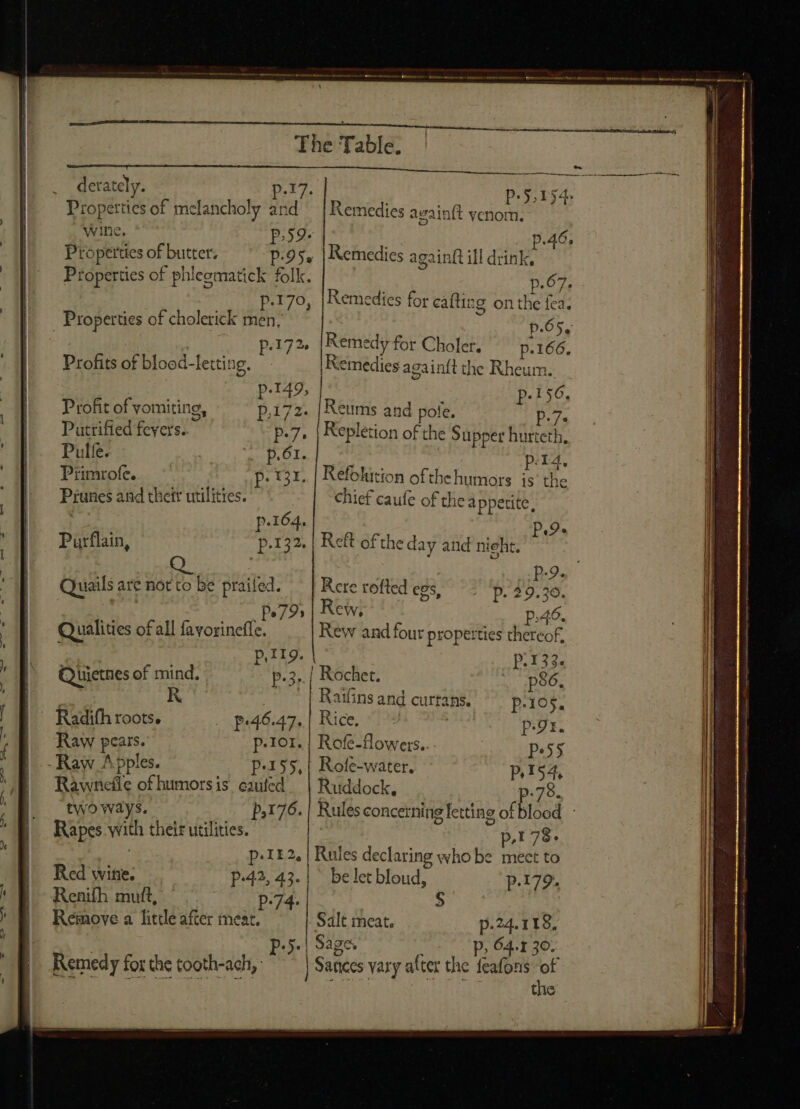 The Table.
derately. p.17.
Properties of melancholy and
wine. p.59.
Properties of butter. p.95.
Properties of phlegmatick folk.
p.170,
Properties of cholerick men,
p.172.
Profits of blood-letting.
p.149,
Profit of vomiting, p.172.
Putrified fevers. p.7.
Pulſe. p.61.
Primroſe. p.131.
Prunes and their utilities.
p.164.
Purſlain, p.132.
Q
Quails are not to be praiſed.
p.79,
Qualities of all ſavorineſſe.
p,119.
Quietnes of mind. p.3.
R
Radiſh roots. p.46.47.
Raw pears. p.101.
Raw Apples. p.155,
Rawneſſe of humors is cauſed
two ways. p,176.
Rapes with their utilities.
p.112.
Red wine. p.42, 43.
Reniſh muſt, p.74.
Remove a little after meat.
p.5.
Remedy for the tooth-ach,
p.5,154.
Remedies againſt venom.
p.46,
Remedies againſt ill drink.
p.67.
Remedies for caſting on the ſea.
p.65.
Remedy for Choler. p.166.
Remedies againſt the Rheum.
p.156,
Reums and poſe. p.7.
Repletion of the Supper hurteth.
p.14.
Reſolution of the humors is the
chief cauſe of the appetite,
p.9.
Reſt of the day and night.
p.9.
Rere roſted egs, p.29.30.
Rew, p.46.
Rew and four properties thereof.
p.133.
Rochet. p86.
Raiſins and currans. p.105.
Rice. p.91.
Roſe-flowers. p.55
Roſe-water. p,154,
Ruddock. p.78.
Rules concerning letting of blood
p,178.
Rules declaring who be meet to
be let bloud, p.179.
S
Salt meat. p.24.118.
Sage. p, 64.130.
Sances vary after the ſeaſons of
the